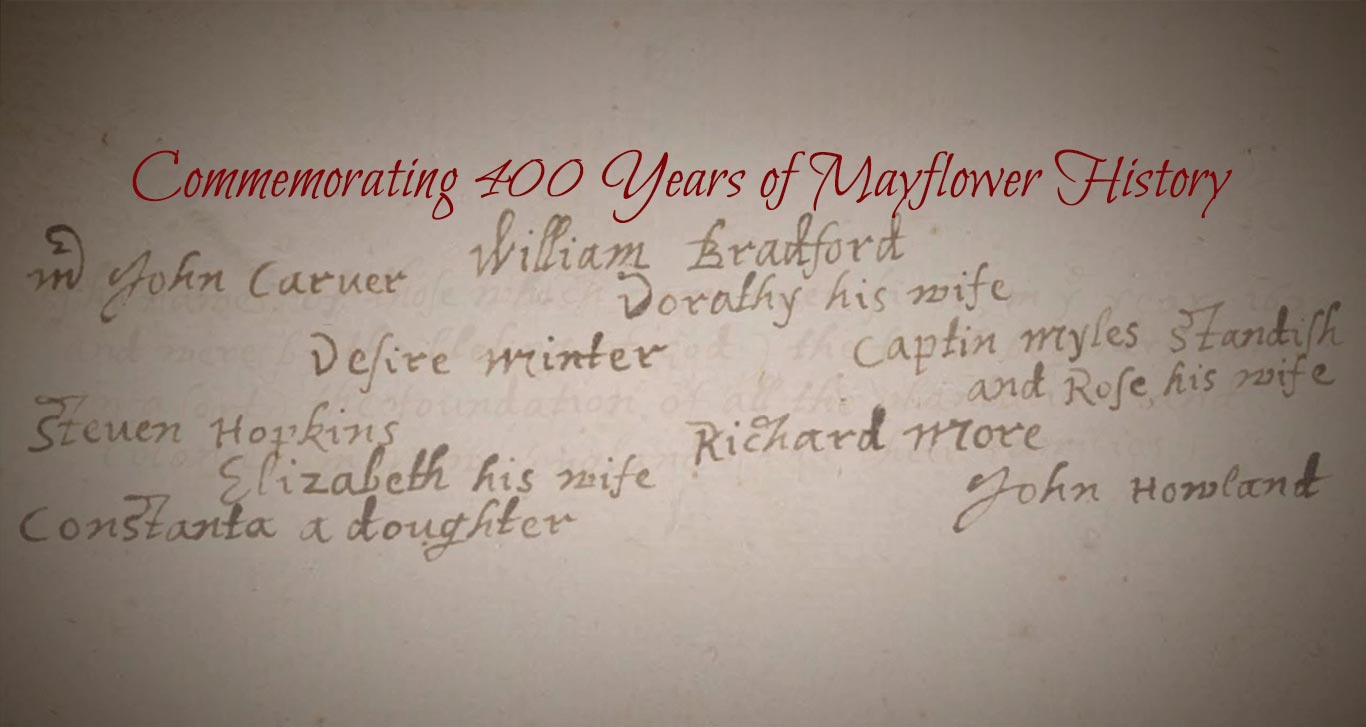 Commemorating 400 Years of Mayflower History
mr John Caruer
William Bradford
Dorathy his wife
Desire Minter
Captin Myles Standish
and Rose his wife
Steuen Hopkins
Elizabeth his wife
Constanta a doughter
Richard More
John Howland